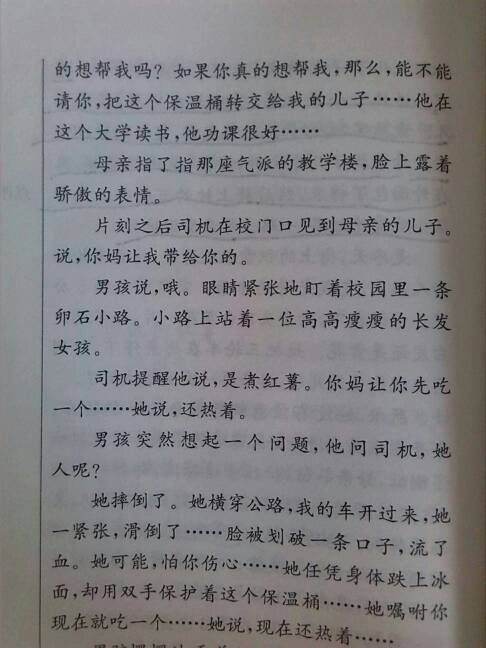 的想帮我吗？如果你真的想帮我，那么，能不能
请你，把这个保温桶转交给我的儿子……他在
这个大学读书，他功课很好……
母亲指了指那座气派的教学楼，脸上露着
骄傲的表情。
片刻之后司机在校门口见到母亲的儿子。
说，你妈让我带给你的。
男孩说，哦。眼睛紧张地盯着校园里一条
卵石小路。小路上站着一位高高瘦瘦的长发
女孩。
司机提醒他说，是煮红薯。你妈让你先吃
一个……她说，还热着。
男孩突然想起一个问题，他问司机，她
人呢？
她摔倒了。她横穿公路，我的车开过来，她
一紧张，滑倒了……脸被划破一条口子，流了
血。她可能，怕你伤心……她任凭身体跌上冰
面，却用双手保护着这个保温桶……她嘱咐你
现在就吃一个……她说，现在还热着……